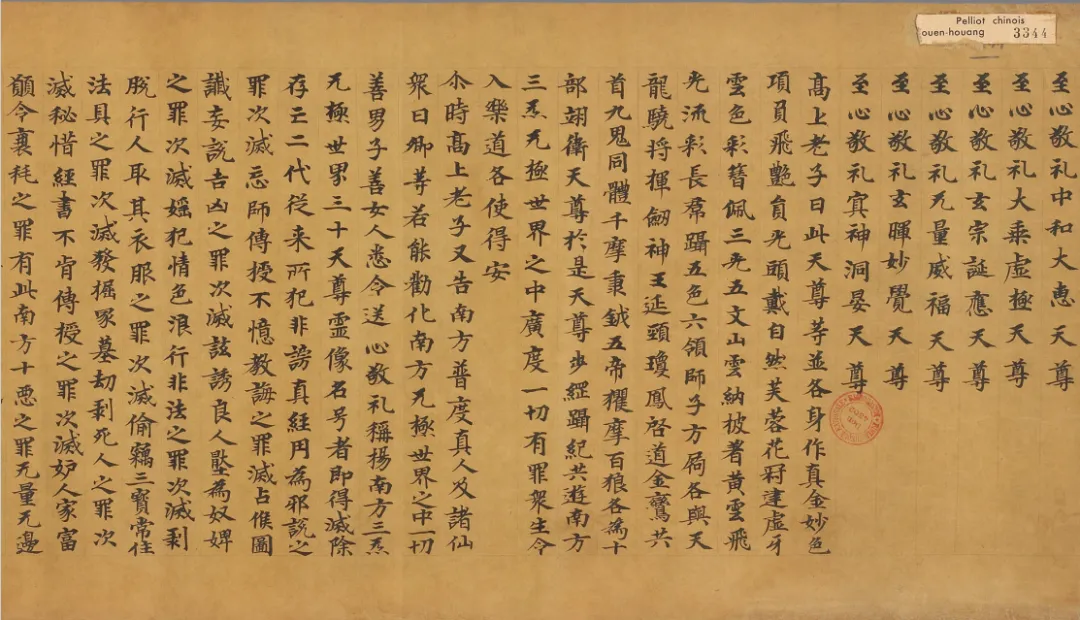 Pelliot chinois
ouen-houang 3344
至心敬礼中和大惠天尊
至心敬礼大乘虚極天尊
至心敬礼玄宗誕應天尊
至心敬礼无量威福天尊
至心敬礼玄暉妙覺天尊
至心敬礼寘神洞晏天尊
高上老子曰此天尊等並各身作真金妙色
項員飛艷負光頭戴自然芙蓉花冠建虚牙
雲色彩簪佩三光五文山雲納披著黄雲飛
光流彩長帬躡五色六領師子方局各與天
龍驍將揮劒神王延頸瓊鳳啓道金鸞共
首九鬼同體千摩秉鉞五帝擢摩百狼各為十
部翊衛天尊於是天尊步經躡紀共遊南方
三炁无極世界之中廣度一切有罪衆生令
入樂道各使得安
尒時高上老子又告南方普度真人及諸仙
衆曰卿等若能勸化南方无極世界之中一切
善男子善女人悉令送心敬礼稱揚南方三炁
无極世界三十天尊靈像名号者即得滅除
存亡二代從来所犯非謗真経円為邪說之
罪次滅忌師傳授不憶教誨之罪滅占候圖
讖妄說吉凶之罪次滅詃誘良人壓為奴婢
之罪次滅婬犯情色浪行非法之罪次滅剥
脫行人取其衣服之罪次滅偷竊三寳常住
法具之罪次滅發掘冢墓劫剥死人之罪次
滅秘惜經書不肯傳授之罪次滅妒人家富
顚令衰耗之罪有此南方十惡之罪无量无邊